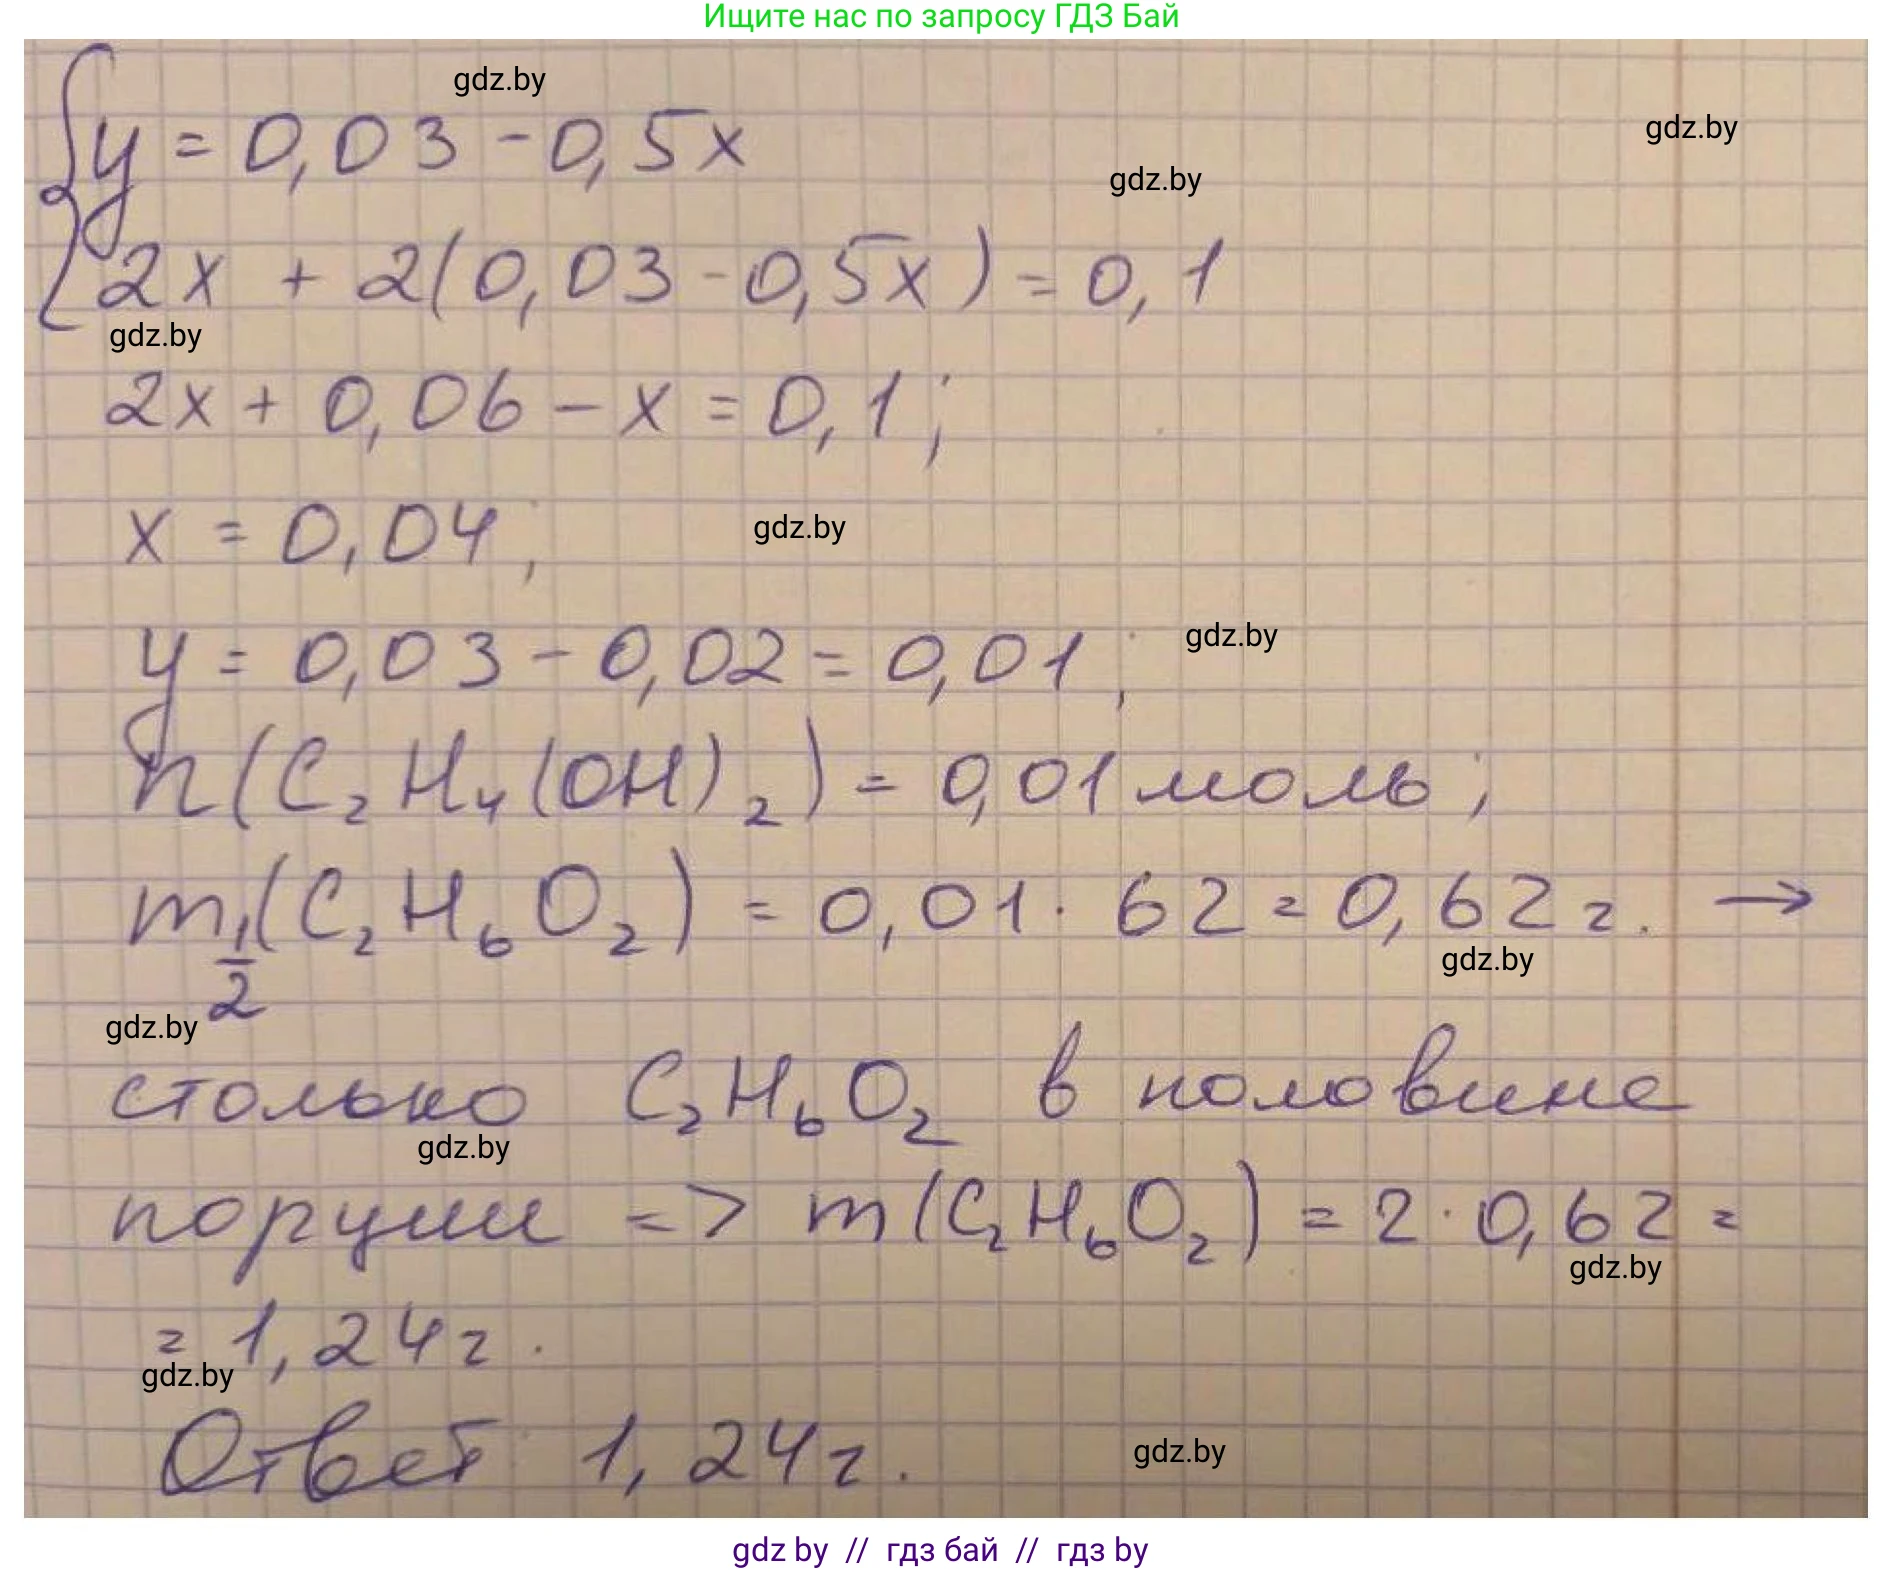 Ищите нас по запросу ГДЗ Бай
gdz.by
y = 0,03 - 0,5x
gdz.by
gdz.by
2x + 2(0,03 - 0,5x) = 0,1
gdz.by
2x + 0,06 - x = 0,1;
x = 0,04;
gdz.by
y = 0,03 - 0,02 = 0,01;
gdz.by
n(C₂H₄(OH)₂) = 0,01 моль;
m 1/2 (C₂H₆O₂) = 0,01 · 62 = 0,62 г. →
gdz.by
gdz.by
столько C₂H₆O₂ в половине
gdz.by
порции => m(C₂H₆O₂) = 2 · 0,62 =
gdz.by
= 1,24 г.
gdz.by
Ответ 1,24 г.
gdz.by
gdz by // гдз бай // гдз by